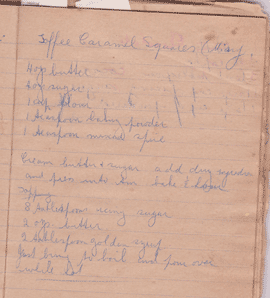 Toffee Caramel Squares (Misy)
4 ozs butter
4 ozs sugar
1 cup flour
1 teaspoon baking powder
1 teaspoon mixed spice
Cream butter & sugar add dry ingredients
and press into tin bake
Topping
3 tablespoons icing sugar
2 ozs butter
2 tablespoons golden syrup
Just bring to boil and pour over
while hot